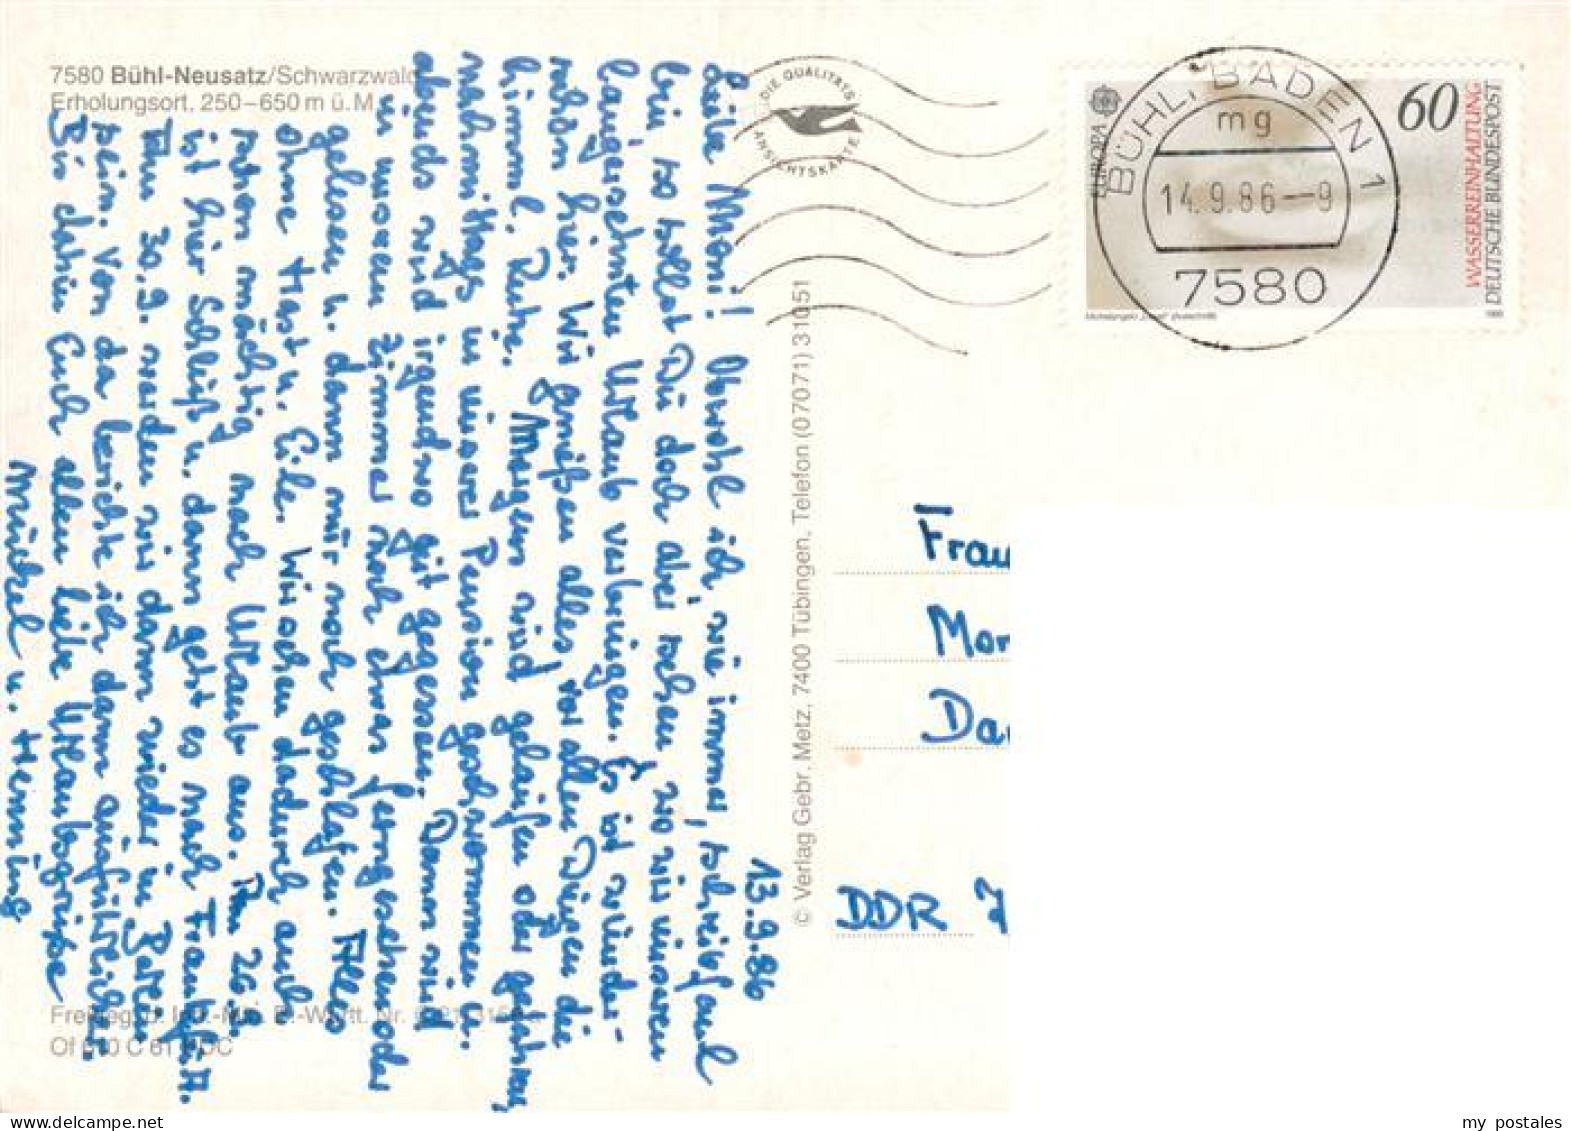 7580 Bühl-Neusatz/Schwarzwald
Erholungsort, 250–650 m ü. M.
13.9.86
Liebe Moni! Obwohl ich, wie immer, schreibfaul
bin, so sollst Du doch aber sehen, wo wir unseren
langersehnten Urlaub verbringen. Es ist wunder-
schön hier. Wir genießen alles, vor allen Dingen die
himml. Ruhe. Morgens wird gelaufen oder gefahren,
nachmittags in unserer Pension geschwommen u.
abends wird irgendwo gut gegessen. Dann wird
in unserem Zimmer noch etwas ferngesehen oder
gelesen u. dann nur noch geschlafen. Alles
ohne Hast u. Eile. Wir sehen dadurch auch
schon mächtig nach Urlaub aus. Am 26.9.
ist hier Schluß u. dann geht es nach Frankfurt.
Am 30.9. werden wir dann wieder in Berlin
sein. Von da berichte ich dann ausführlicher.
Bis dahin Euch allen liebe Urlaubsgrüße
u. Henning
© Verlag Gebr. Metz, 7400 Tübingen, Telefon (07071) 31051
DIE QUALITÄTS
ANSICHTSKARTE
BÜHL, BADEN 1
mg
14.9.86-9
7580
EUROPA
60
WASSERREINHALTUNG
DEUTSCHE BUNDESPOST
Frau
Mor
Da
DDR 7
my_postales